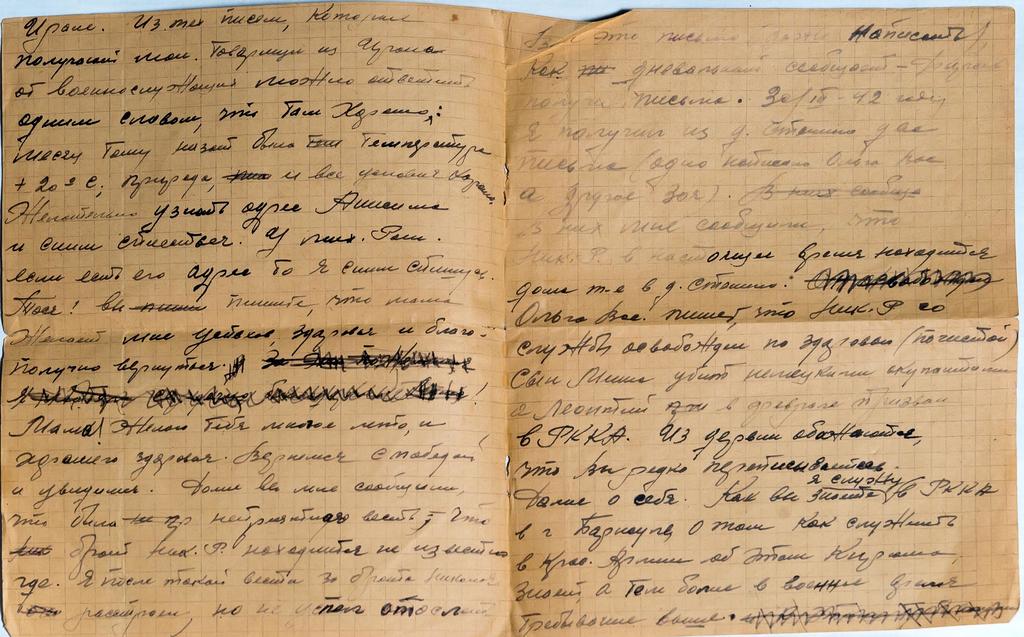 Иране. Из тех писем, которые
получают мои товарищи из Ирана
от военнослужащих можно ответить
одним словом, что там хорошо:
месяц тому назад была температура
+ 20° С; природа, и все условия хорошие.
Желательно узнать адрес Анисима
и с ним списаться. У них.
если есть его адрес то я с ним спишусь.
Тося! вы пишите, что мама
желает мне успеха, здоровья и благо-
получно вернуться.
Мама! Желаю тебе многое лето, и
хорошего здоровья. Вернемся с победой
и увидимся. Далее вы мне сообщили,
что была неприятная весть, что
брат Ник. Р находится не известно
где. Я после такой вести за брата Николая
расстроен, но не успел отослать
это письмо Написать,
как дневальный сообщает –
получи письмо. 30/III - 42 года
Я получил из д. Степино два
письма (одно написано Ольга Вас
а другое Зоя).
В них мне сообщили, что
Ник. Р. в настоящее время находится
дома т-е в д. Степино:
Ольга Вас. пишет, что Ник. Р со
службы освобожден по здоровью
Сын Миша убит немецкими окупантами
а Леонтий в феврале призван
в РККА. Из дерев обижаются,
что вы редко переписываетесь.
Далее о себе. Как вы знаете я служу в РККА
в г Барнауле о том как служить
в Крас. Армии об этом
знает, а тем более в военное время
требование выше.